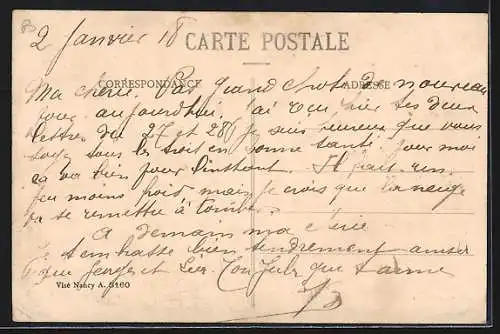 2 Janvier 18
CARTE POSTALE
CORRESPONDANCE
ADRESSE
Ma chérie. Pas grand chose de nouveau
pour aujourdhui. J'ai reçu hier tes deux
lettres du 27 et 28 je suis heureux que vous
soyez tous les trois en bonne santé. pour moi
ça va bien pour l'instant. Il fait un
peu moins froid mais je crois que la neige
va se remettre à tomber.
A demain ma chérie
Je t'embrasse bien tendrement ainsi
que Georges et Ton Jules que t'aime
Visé Nancy A. 3160